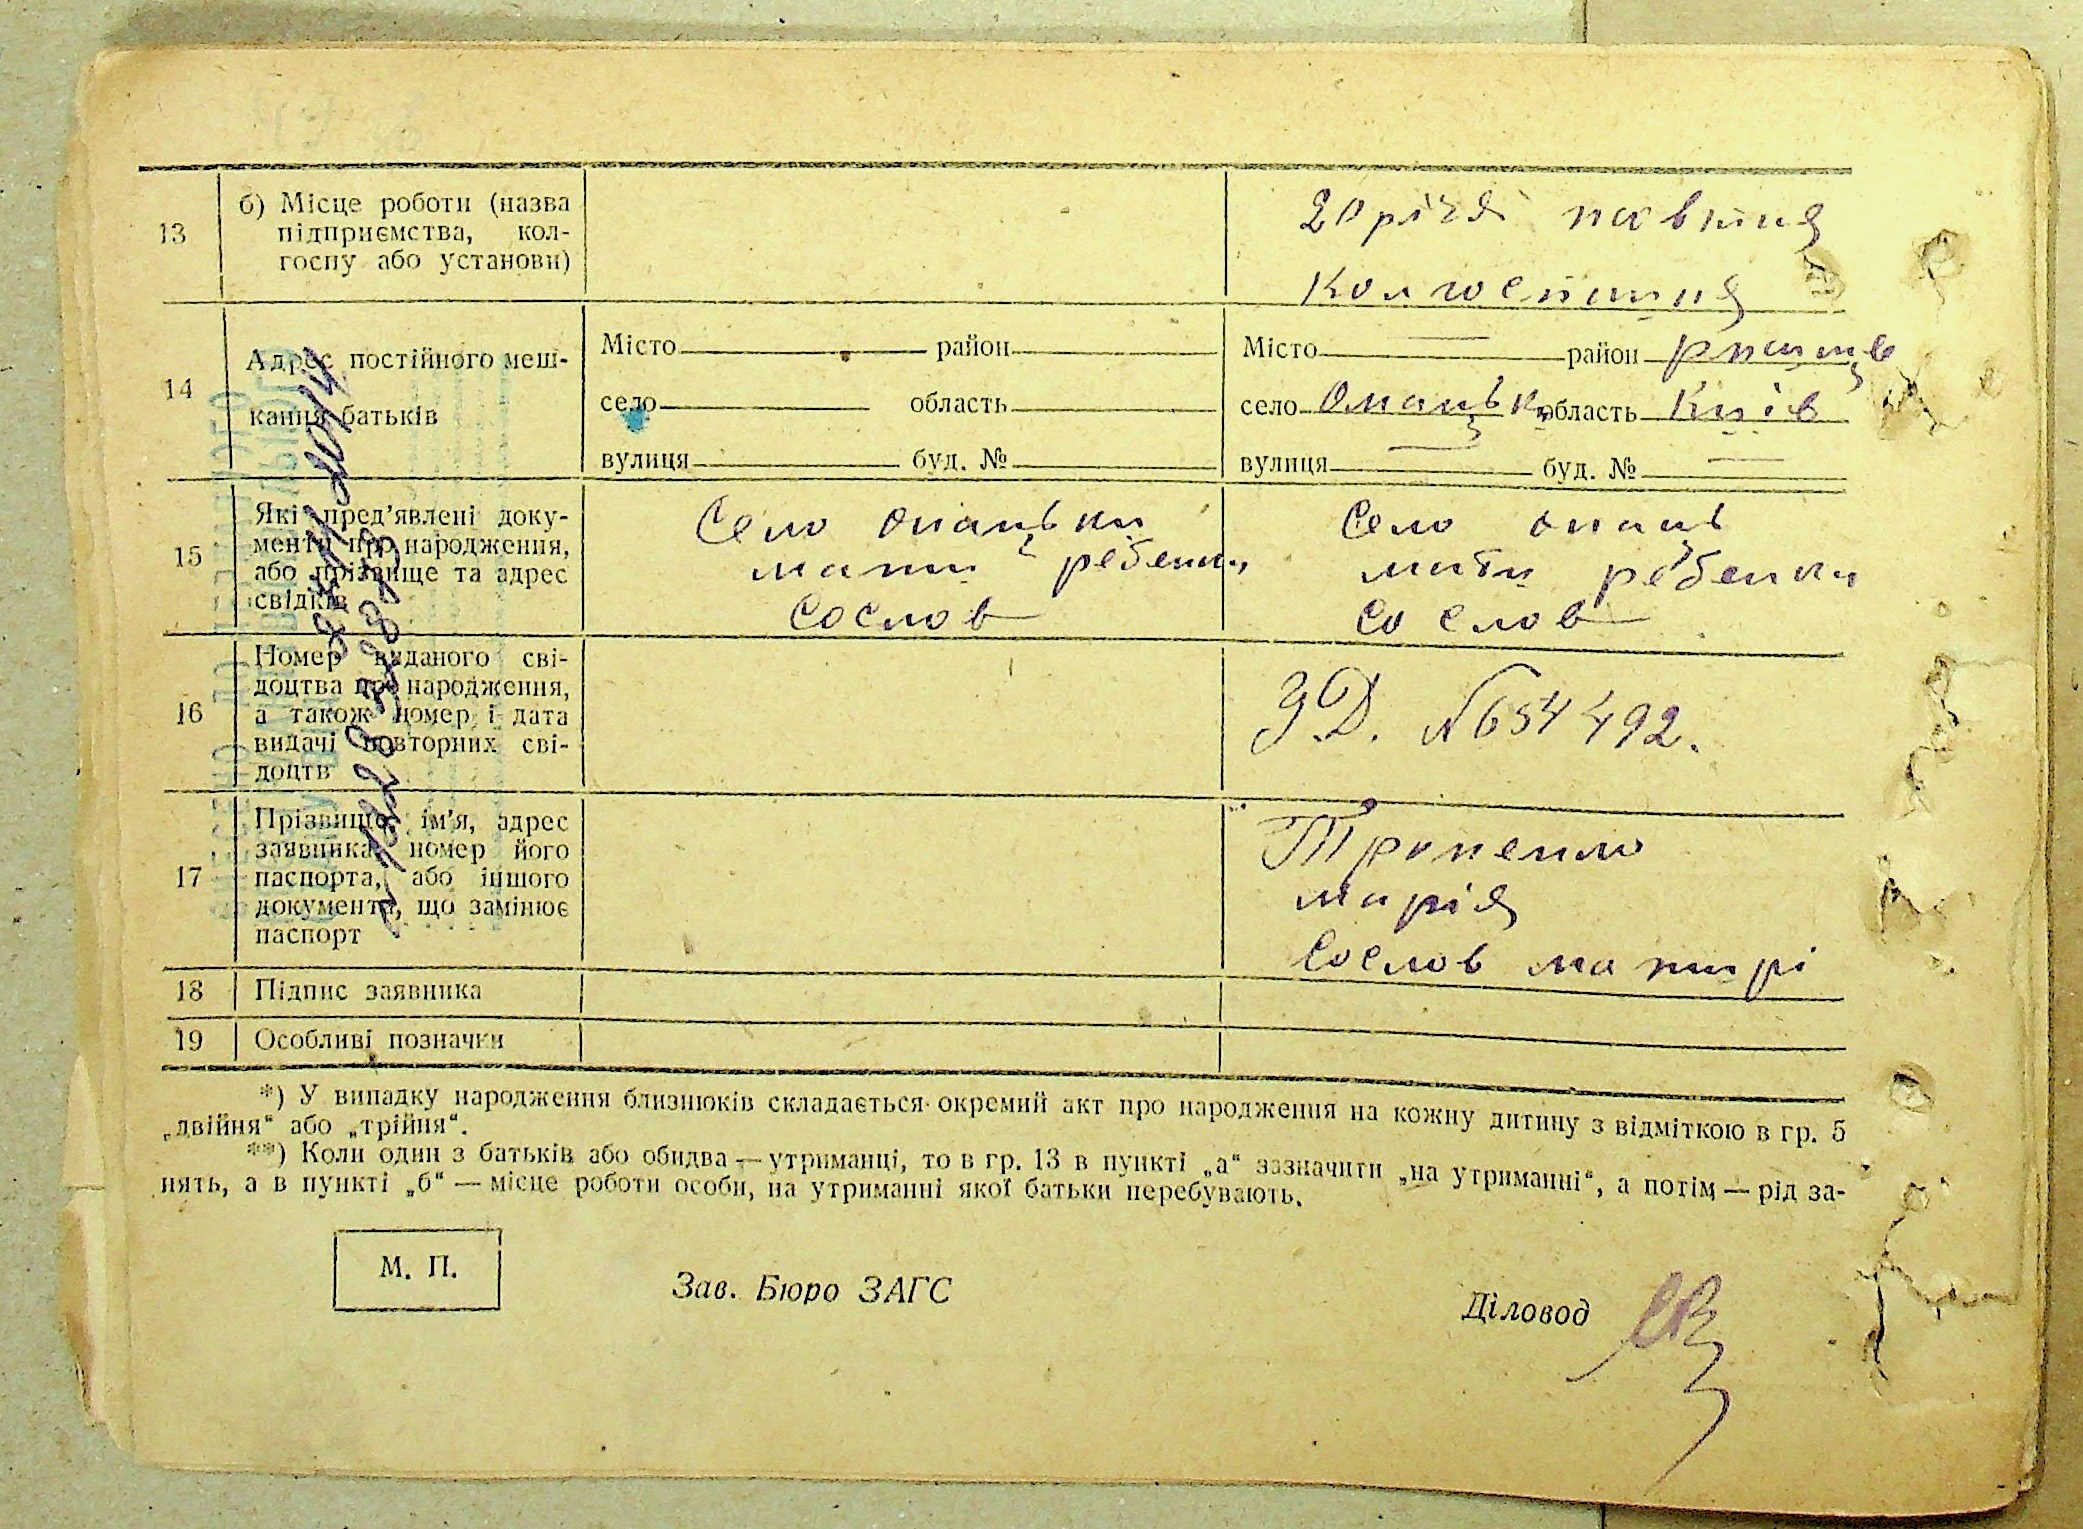 13
б) Місце роботи (назва
підприємства, кол-
госпу або установи)
колгоспниця
14
Адрес постійного меш-
кання батьків
Місто район
село область
вулиця буд. №
Місто район
село область Київ
вулиця буд. №
15
Які пред'явлені доку-
менти про народження,
або прізвище та адрес
свідків
Село
мати ребенка
со слов
Село
мати ребенка
со слов
16
Номер виданого сві-
доцтва про народження,
а також номер і дата
видачі повторних сві-
доцтв
ЗД. №654492.
17
Прізвище, ім'я, адрес
заявника, номер його
паспорта, або іншого
документа, що замінює
паспорт
Марія
со слов матирі
18
Підпис заявника
19
Особливі позначки
*) У випадку народження близнюків складається окремий акт про народження на кожну дитину з відміткою в гр. 5
„двійня“ або „трійня“.
**) Коли один з батьків або обидва — утриманці, то в гр. 13 в пункті „а“ зазначити „на утриманні“, а потім — рід за-
нять, а в пункті „б“ — місце роботи особи, на утриманні якої батьки перебувають.
М. П.
Зав. Бюро ЗАГС
Діловод